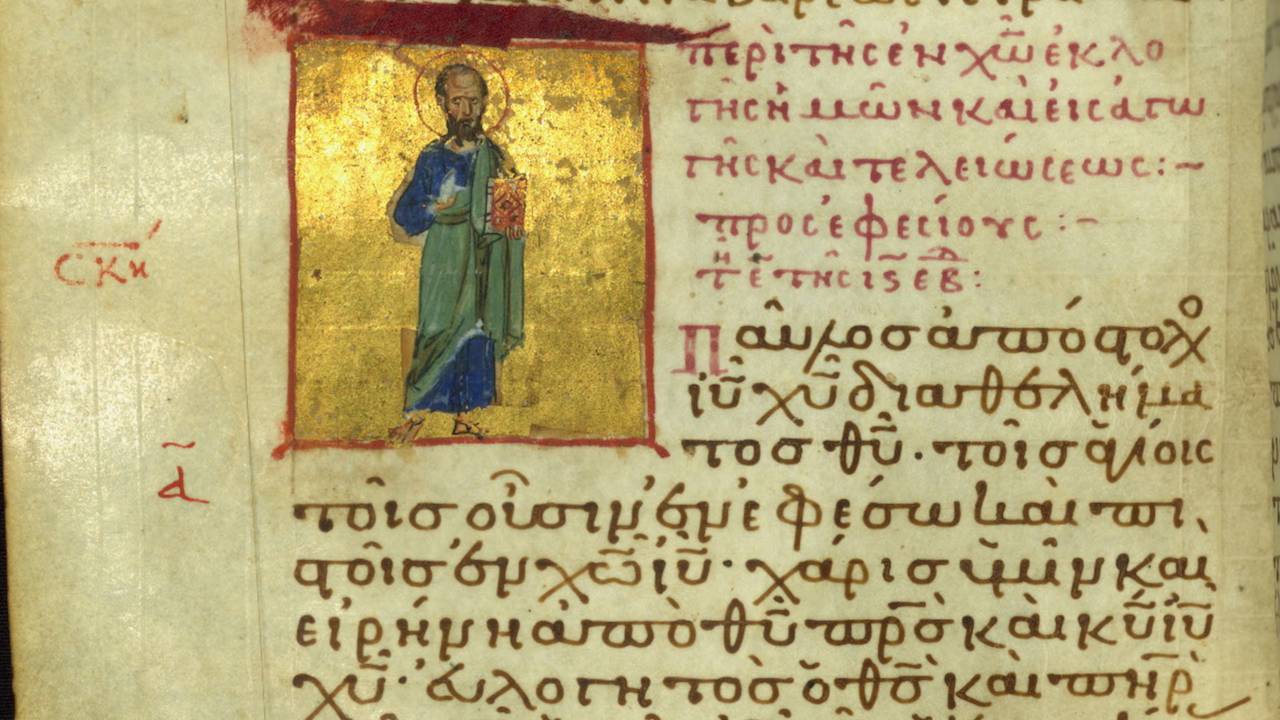 περὶ τῆς ἐν χῶ ἐκλο
γῆς ἡμῶν καὶ εἰσαγω
γῆς καὶ τελειώσεως:~
προσ ἐφεσίους :~
σκη
Παῦλοσ ἀπόστολο
ἰῦ χῦ διὰ θελήμα
α
τοσ θῦ. τοῖσ ἁγίοις
τοῖσ οὖσιν ἐν ἐφέσω καὶ πι
στοῖσ ἐν χῶ ἰῦ· χάρισ ὑμῖν καὶ
εἰρήνη ἀπὸ θῦ πρσ καὶ κῦ ἰῦ
χῦ· εὐλογητὸσ ὁ θσ καὶ πηρ